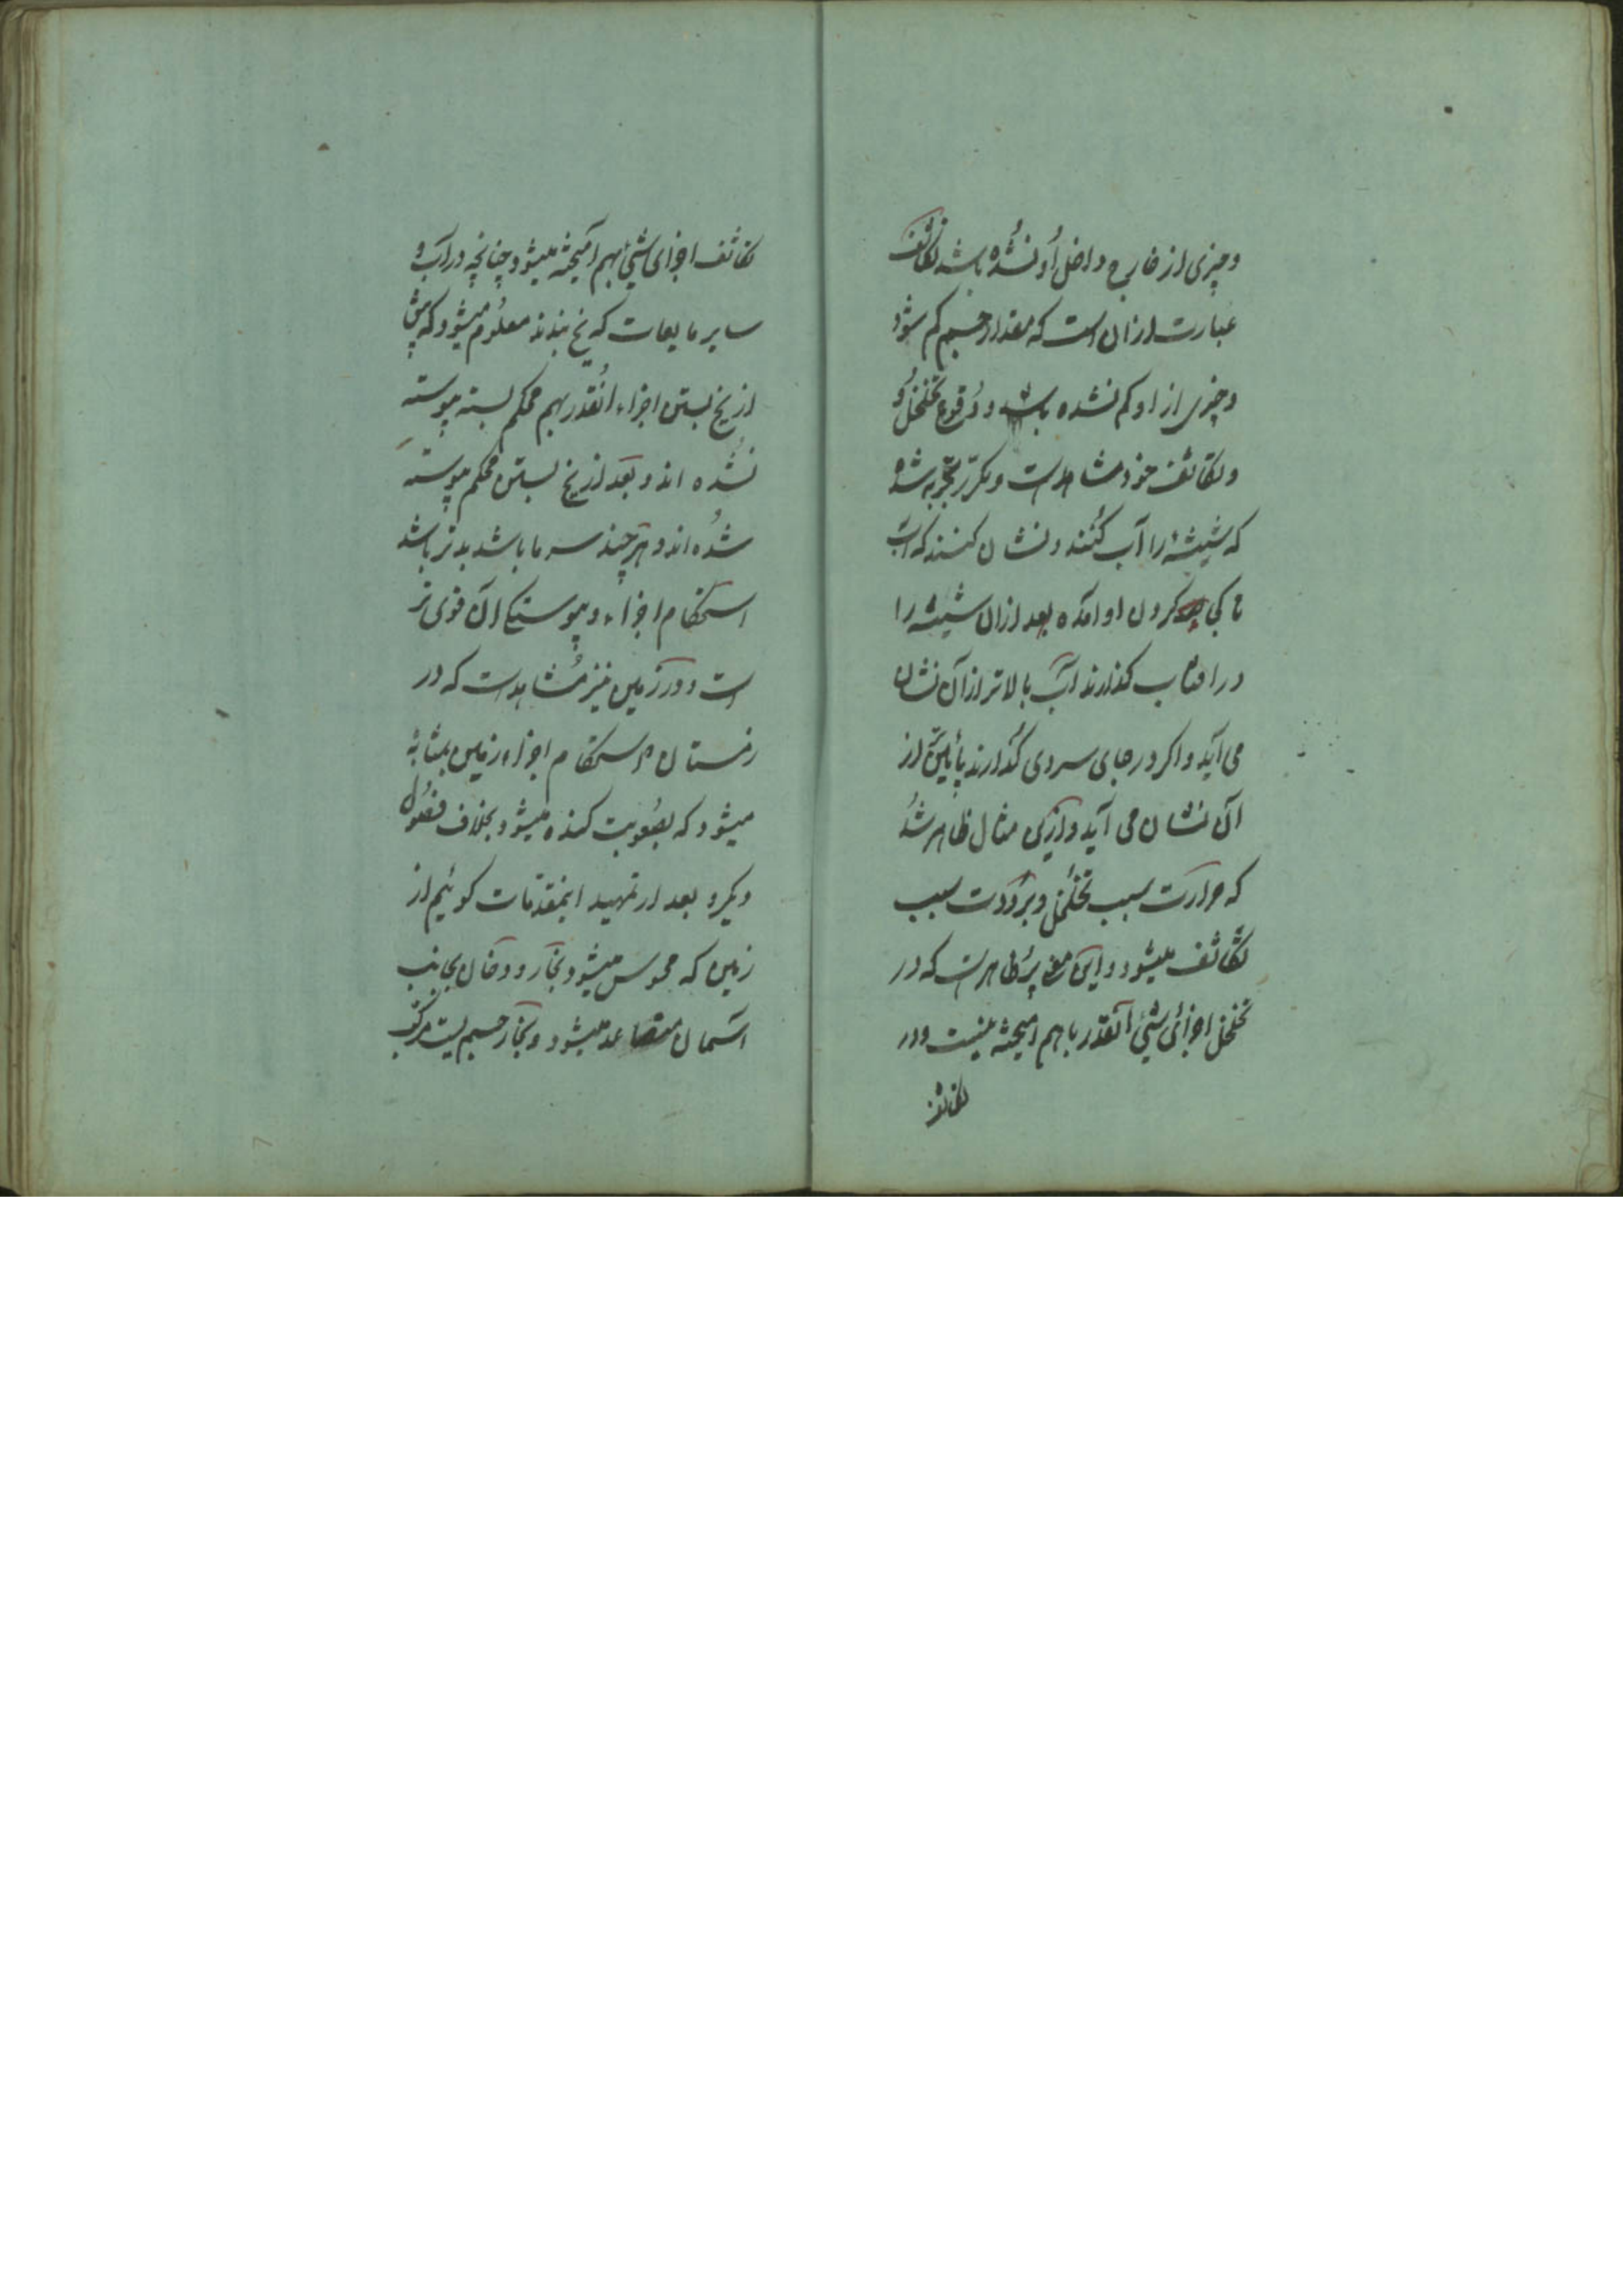 و چیزی از خارج داخل اُو نشُده باشد تکاثف
عبارت از ان است که مقدار جسم کم شود
و چیزی از او کم نشده باشد و وُقوع تخلخُل و
و تکاثف خود مشاهدست و مکرّر تجربه شده
که شیشهٔ را آب کُنند و نشان کنند که آب
تا کی کردن او امده بعد ازان شیشه را
در افتاب گذارند آب بالاتر ازآن نشان
می آید و اگر در جای سردی گذارند پائین از
آن نشان می آید و ازین مثال ظاهر شُد
که حرارت سبب تخلخُل و برُودت سبب
تکاثف میشود و این معنی پُر ظاهرست که در
تخلخل اجزائ شیئ آنقدر باهم امیخته نیست و در
تکاثف
تکاثف اجزای شیئ بهم آمیخته میشود چنانچه در آب و
سایر مایعات که یخ بندند معلُوم میشود که پیش
از یخ بستن اجزاء انقدر بهم محکم بسته پیوسته
نشُده اند و بعد از یخ بستن محکم پیوسته
شدُه اند و هر چند سرما باشد بدتر باشد
استحکام اجزاء و پیوستگی آن قوی تر
است و در زمین نیز مُشاهدست که در
زمستان استحکام اجزاء زمین بمثابهٔ
میشود که بصُعوبت کنده میشود بخلاف فصُول
دیگر و بعد از تمهید اینمقدّمات گوئیم از
زمین که محوس میشود بخار و دخان بجانب
آسمان متصاعد میشود و بخار جسمیست مرکّب